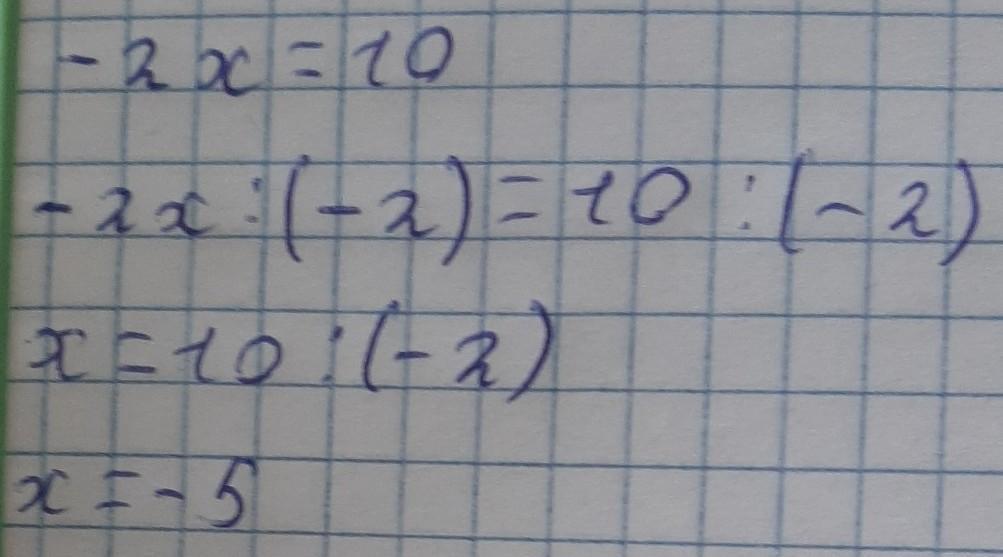 -2x=10
-2x:(-2)=10:(-2)
x=10:(-2)
x=-5